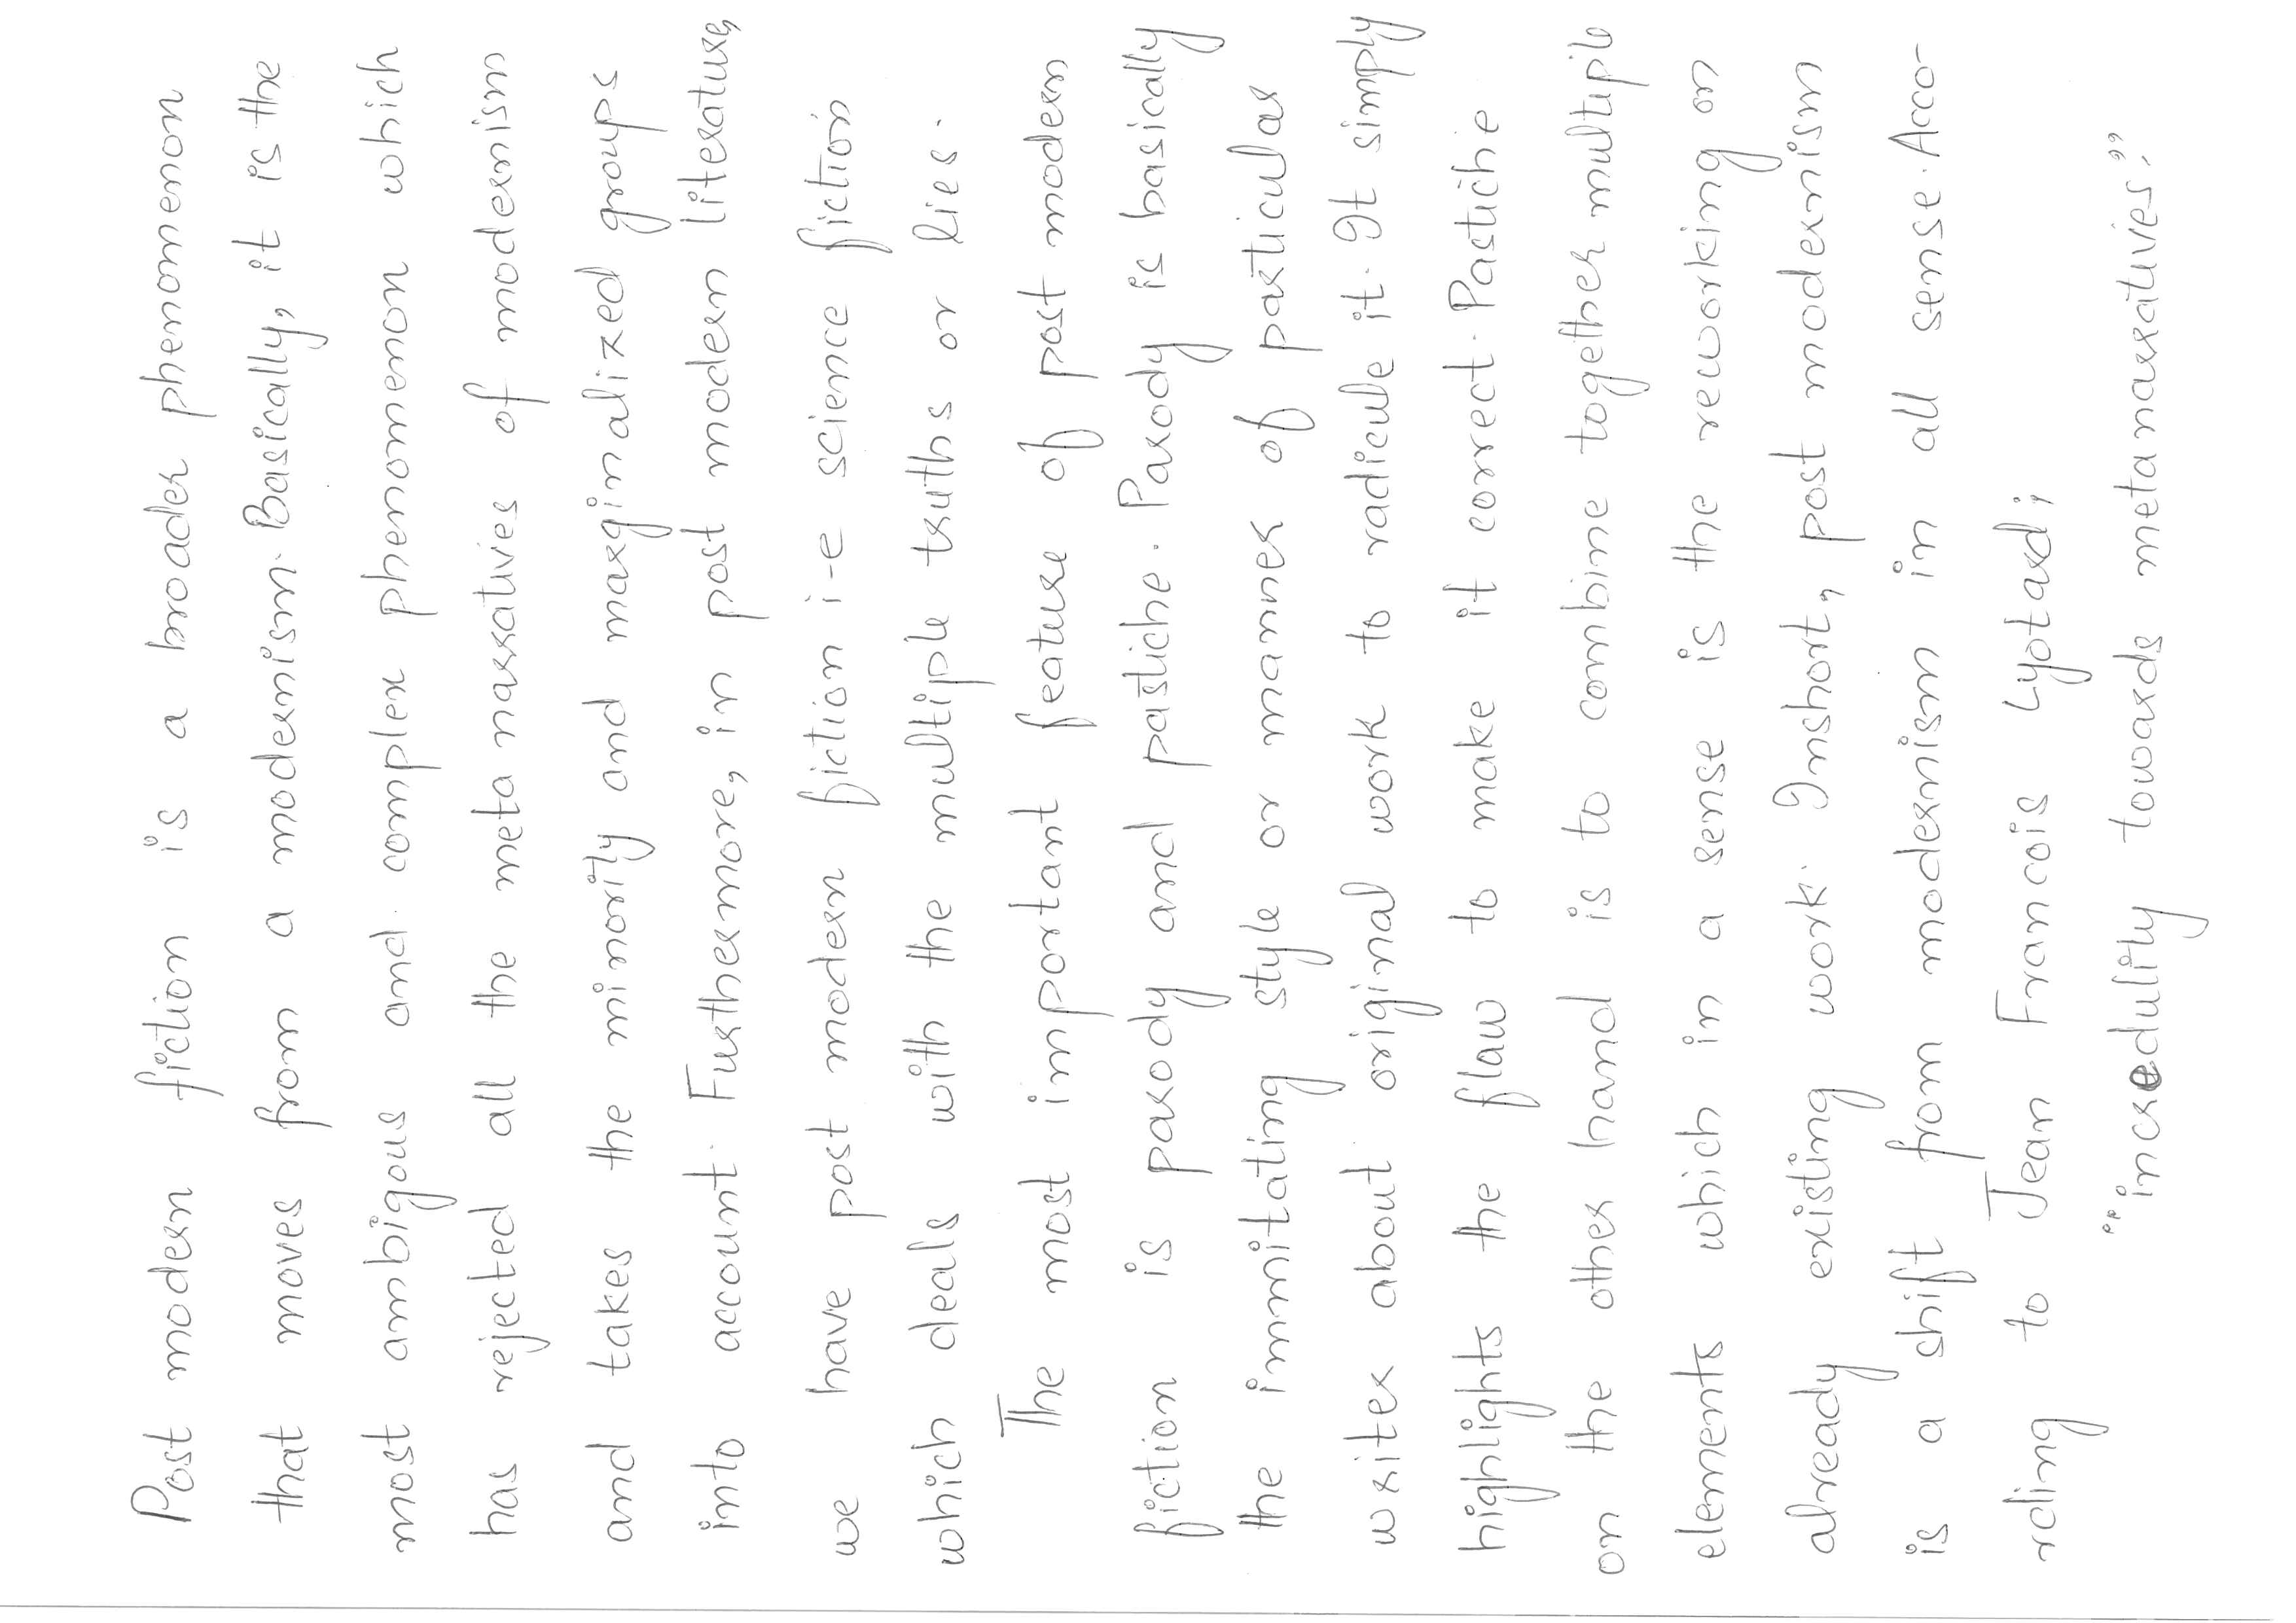 Post modern fiction is a broader phenomenon
that moves from a modernism. Basically, it is the
most ambigous and complex phenomenon which
has rejected all the meta narratives of modernism
and takes the minority and marginalized groups
into account. Furthermore, in post modern literature,
we have post modern fiction i-e science fiction
which deals with the multiple truths or lies.
The most important feature of post modern
fiction is parody and pastiche. Parody is basically
the immitating style or manner of particular
writer about original work to radicule it. It simply
highlights the flaw to make it correct. Pastiche
on the other hand is to combine together multiple
elements which in a sense is the reworking on
already existing work. Inshort, post modernism
is a shift from modernism in all sense. Acco-
rding to Jean Francois Lyotard;
"incredulity towards meta narratives."